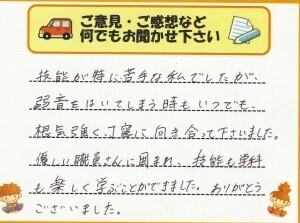 ご意見・ご感想など
何でもお聞かせ下さい
技能が特に苦手な私でしたが、
弱音をはいてしまう時もいつでも、
根気強く丁寧に向き合って下さいました。
優しい職員さんに囲まれ、技能も学科
も楽しく学ぶことができました。ありがとう
ございました。